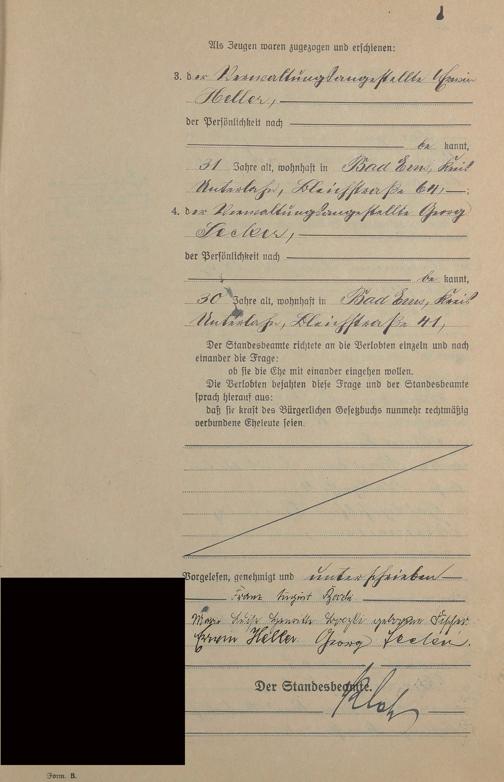 Als Zeugen waren zugezogen und erschienen:
3. der Verwaltungsangestellte Erwin
Heller,
der Persönlichkeit nach
be kannt,
31 Jahre alt, wohnhaft in Bad Ems, Kreis
Unterlahn, Bleichstraße 64,
4. der Verwaltungsangestellte Georg
der Persönlichkeit nach
be kannt,
30 Jahre alt, wohnhaft in Bad Ems, Kreis
Unterlahn, Bleichstraße 41,
Der Standesbeamte richtete an die Verlobten einzeln und nach
einander die Frage:
ob sie die Ehe mit einander eingehen wollen.
Die Verlobten bejahten diese Frage und der Standesbeamte
sprach hierauf aus:
daß sie kraft des Bürgerlichen Gesetzbuchs nunmehr rechtmäßig
verbundene Eheleute seien.
Vorgelesen, genehmigt und unterschrieben
Franz August
geborene Fischer
Erwin Heller Georg
Der Standesbeamte.
Form. B.